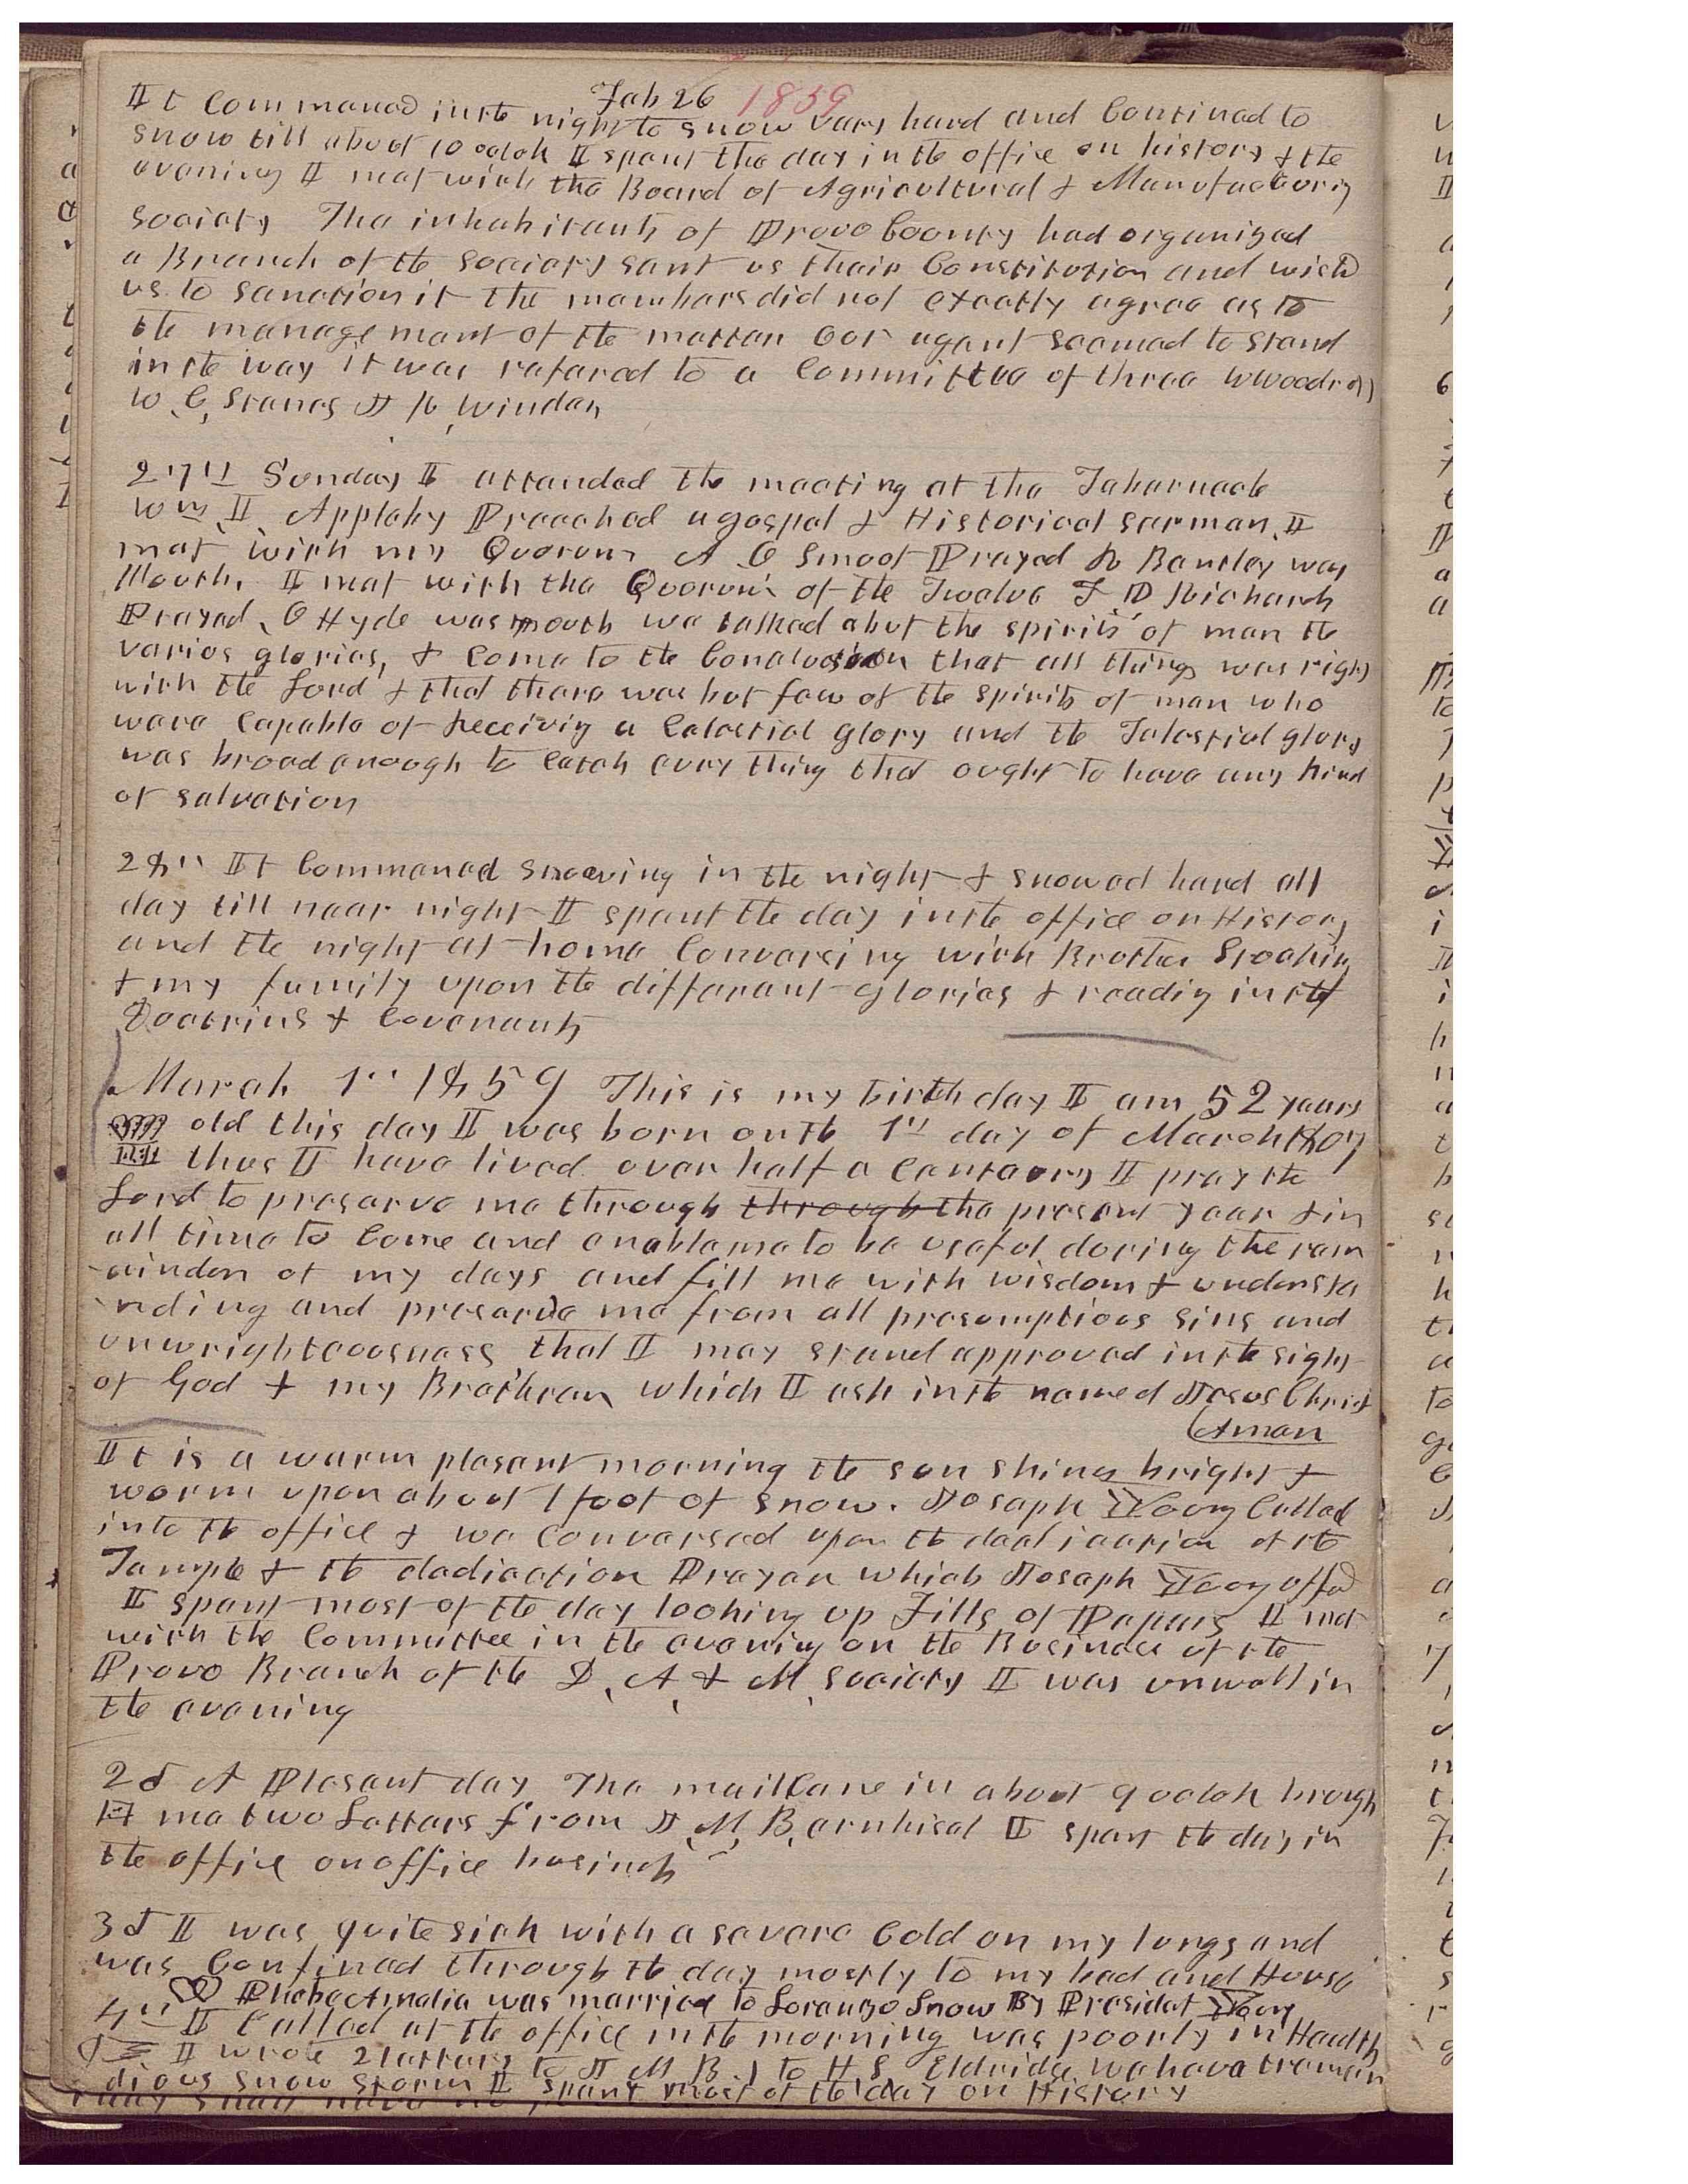 Feb 26 1859
It Commenced in the night to snow very hard and Continued to
snow till about 10 oclok I spent the day in the office on history & the
evening I met with the Board of Agricultural & Manufactoring
Society The inhabitants of Provo County had organized
a Branch of the society sent us their Constitution and wishd
us to sanction it the members did not exactly agree as to
the management of the matter our agent seemed to stand
in the way it was refered to a Committee of three W Woodruff
W. C, Stanes J R, Winder
27th Sunday I attended the meeting at the Tabernacle
Wm I. Appleby Preached a gospel & Historical sermon. I
met with my Quorum A O Smoot Prayed R Bentley was
Mouth. I met with the Quorum of the Twelve F D Richards
Prayed, O Hyde was mouth we talked abut the spirits of man the
varios glories, & Come to the Conclusion that all things was right
with the Lord & that there was but few of the spirits of man who
were Capable of Receivig a Celestial glory and the Telestial glory
was broad enough to Catch evry thing that ought to have any kind
of salvation
28th It Commenced snowing in the night & snowed hard all
day till near night I spent the day in the office on History
and the night at home Conversing with Brother Stocking
& my family upon the different glories & readig in the
Doctrins & Covenants
March 1st 1859 This is my birth day I am 52 years
old this day I was born on the 1st day of March 1807
thus I have lived over half a Centuory I pray the
Lord to preserve me through through the present year & in
all time to Come and enable me to be useful during the rem
-ainder of my days and fill me with wisdom & understa
-nding and preserve me from all presumptious sins and
unwrighteousness that I may stand approved in the sight
of God & my Brethren which I ask in the name of Jesus Christ
Amen
It is a warm plesant morning the sun shines bright &
worm upon about 1 foot of snow. Joseph Young Called
into the office & we Conversed upon the dedication of the
Temple & the dedication Prayer which Joseph Young offd
I spent most of the day looking up Fills of Papers I met
with the Committee in the evening on the Business of the
Provo Branch of the D, A, & M, Society I was unwell in
the evening
2d A Plesant day The mail Cane in about 9 oclok brough
me two Letters from J, M, Bernhisel I spent the day in
the office on office business
3d I was quite sick with a severe Cold on my lungs and
was Confined through the day mostly to my bed and House
Phebe Amelia was married to Lorenzo Snow By Presidet Young
4th I Called at the office in the morning was poorly in Health
I wrote 2 letters to J M B. 1 to H. S. Eldridge we have tremen
dious snow storm I spent most of the day on History